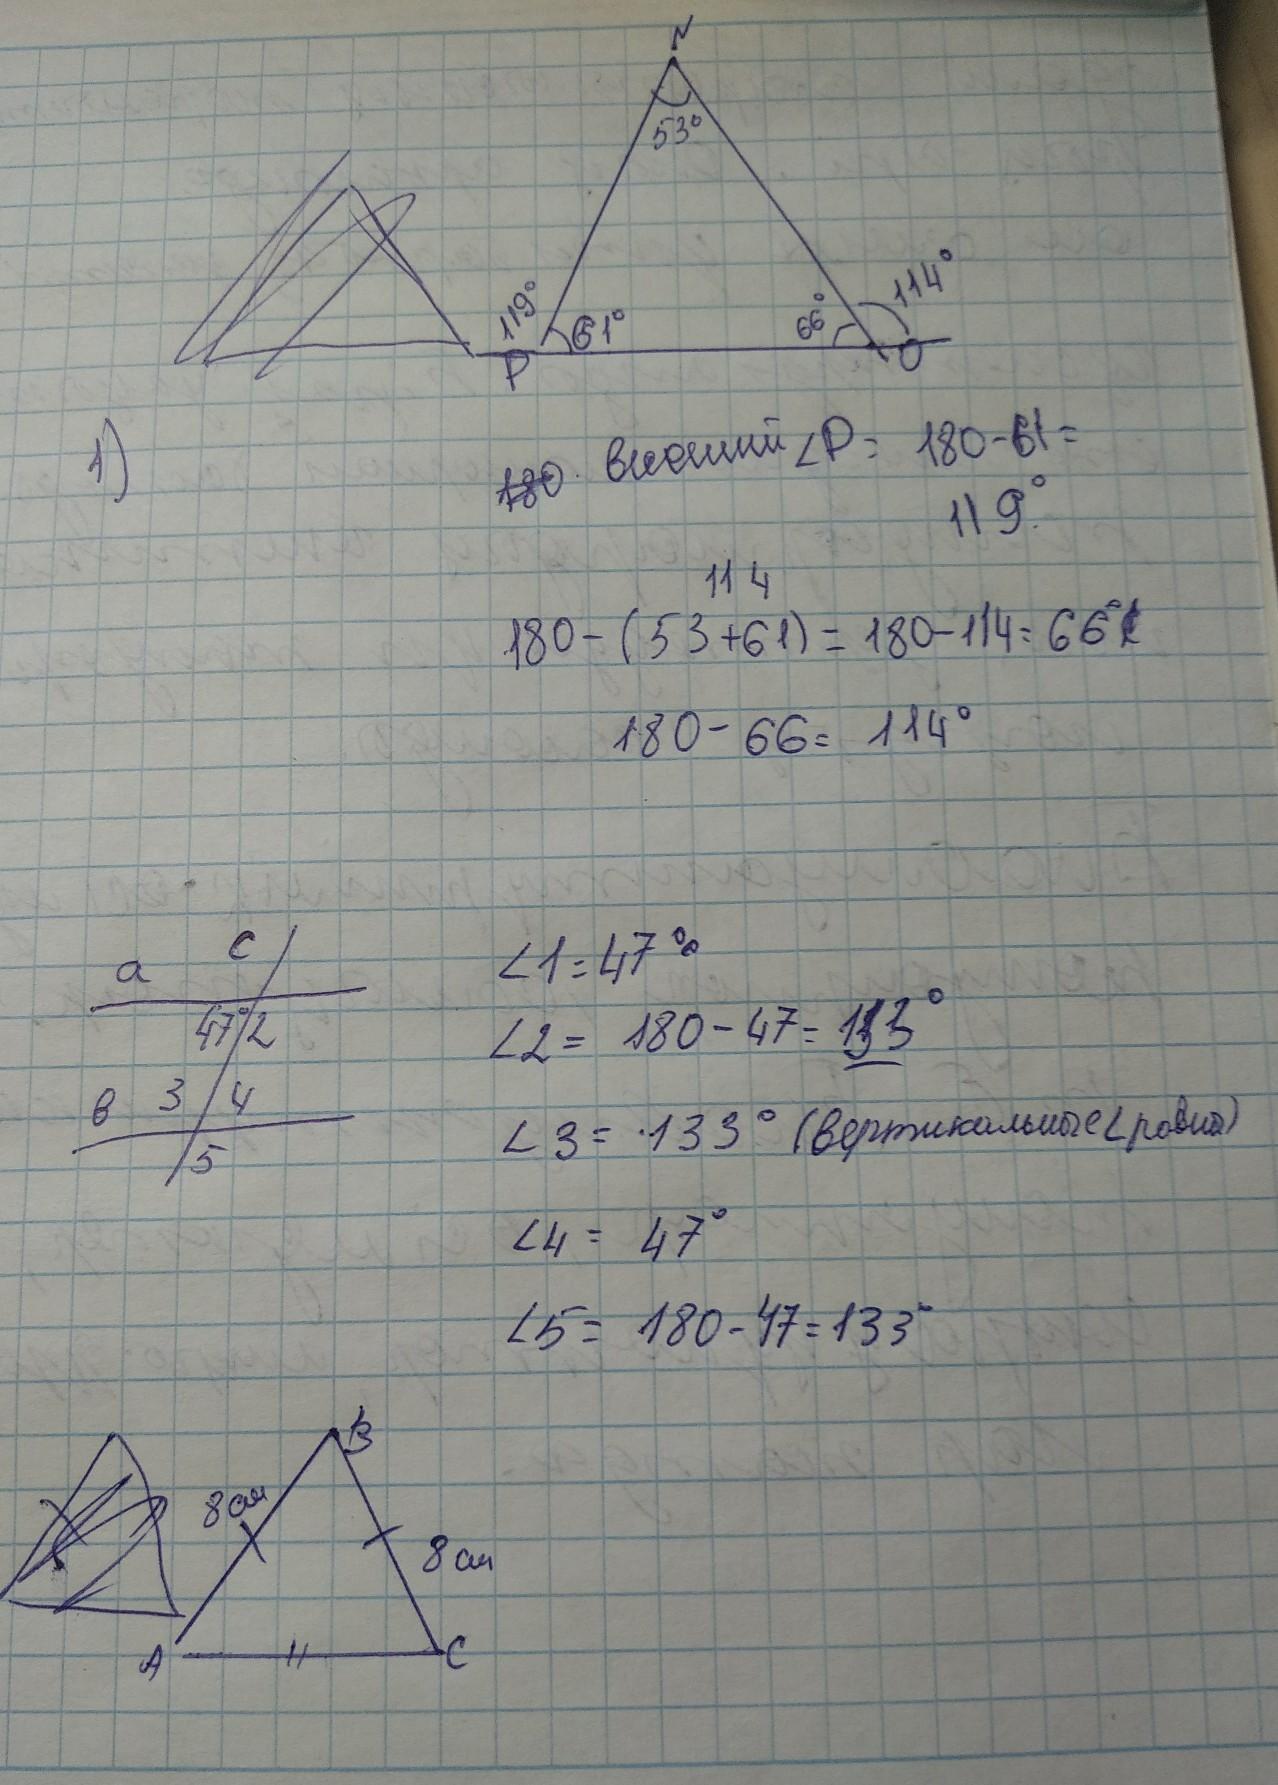 N
53°
119°
61°
66°
114°
P
O
1)
180. внешний ∠P = 180-61=
119°
114
180-(53+61)=180-114=66°
180-66= 114°
a c
47° 2
в 3 4
5
∠1=47°
∠2= 180-47=133°
∠3= 133° (вертикальные ∠ равны)
∠4= 47°
∠5= 180-47=133°
B
8 см
8 см
A
C